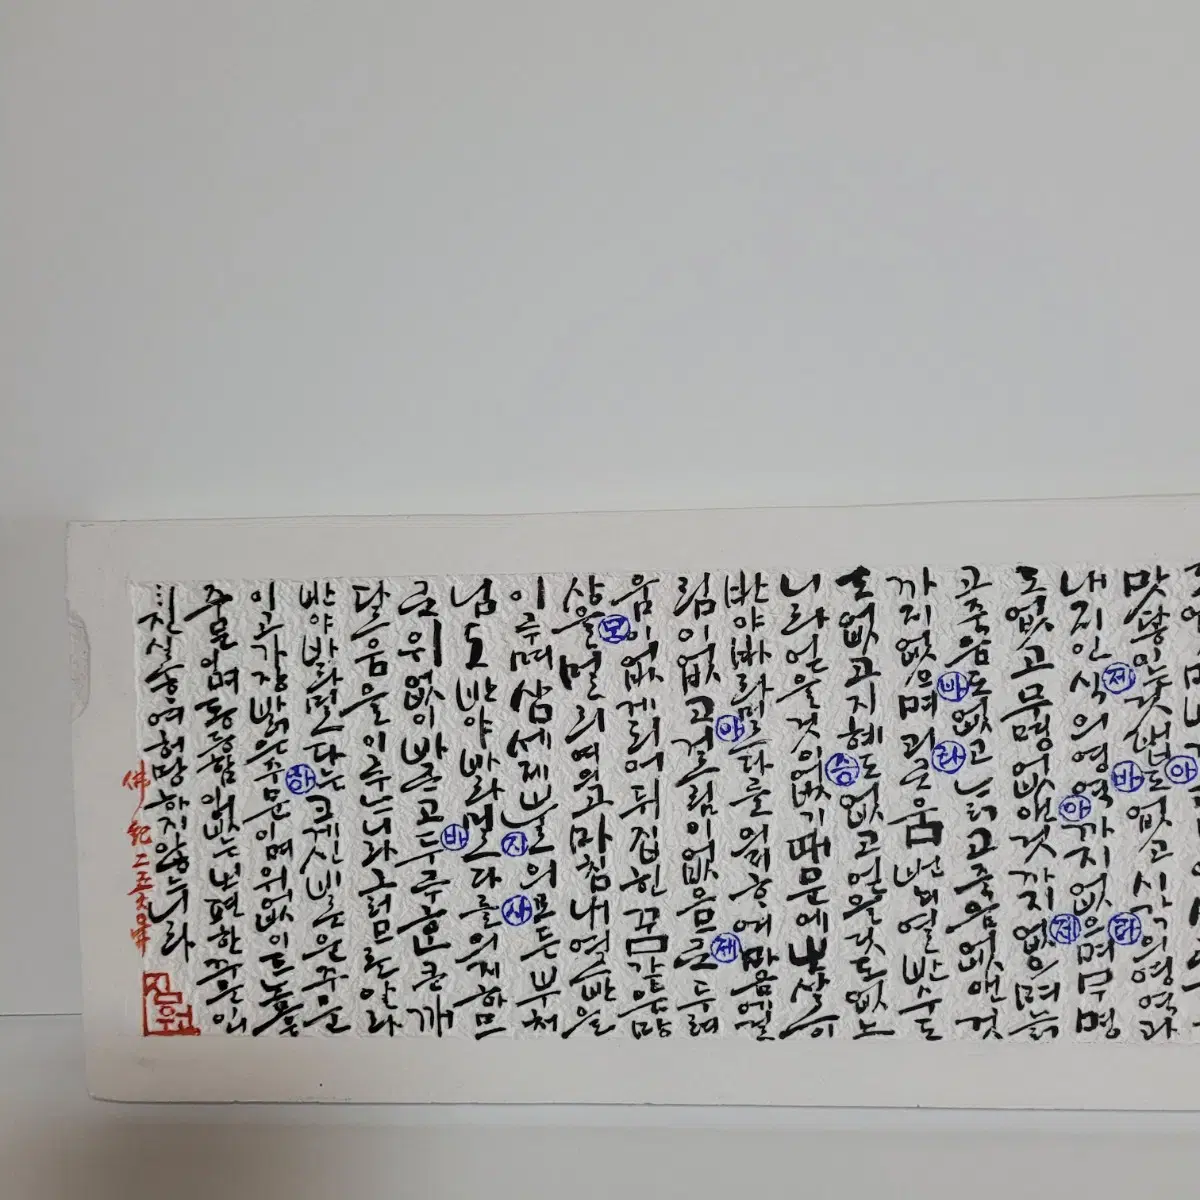 맛 법도없고시각의영역과
내지인식의영역까지없으며무명
도없고무명없앤것까지없으며늙
고죽음도없고늙고죽음없앤것
까지없으며괴로움번뇌열반수도
도없고지혜도없고얻을것도없느
니라얻을것이없기때문에보살이
반야바라밀다를의지하여마음에걸
림이없고걸림이없음므로두려
움이없게되어뒤집힌꿈같은망
상을멀리떠나고마침내열반을
이루며삼세제불의모든부처
님도반야바라밀다를의지하므
로위없이바르고두루한큰깨
달음을이루느니라그러므로알라
반야바라밀다는크게신비로운주문
이고가장밝은주문이며위없이드높은
주문이며동등함이없는 편한주문이니
진실하여허망하지않느니라
佛紀二五六
아
제
아
제
바
라
바
라
승
아
제
모
지
사
바
하